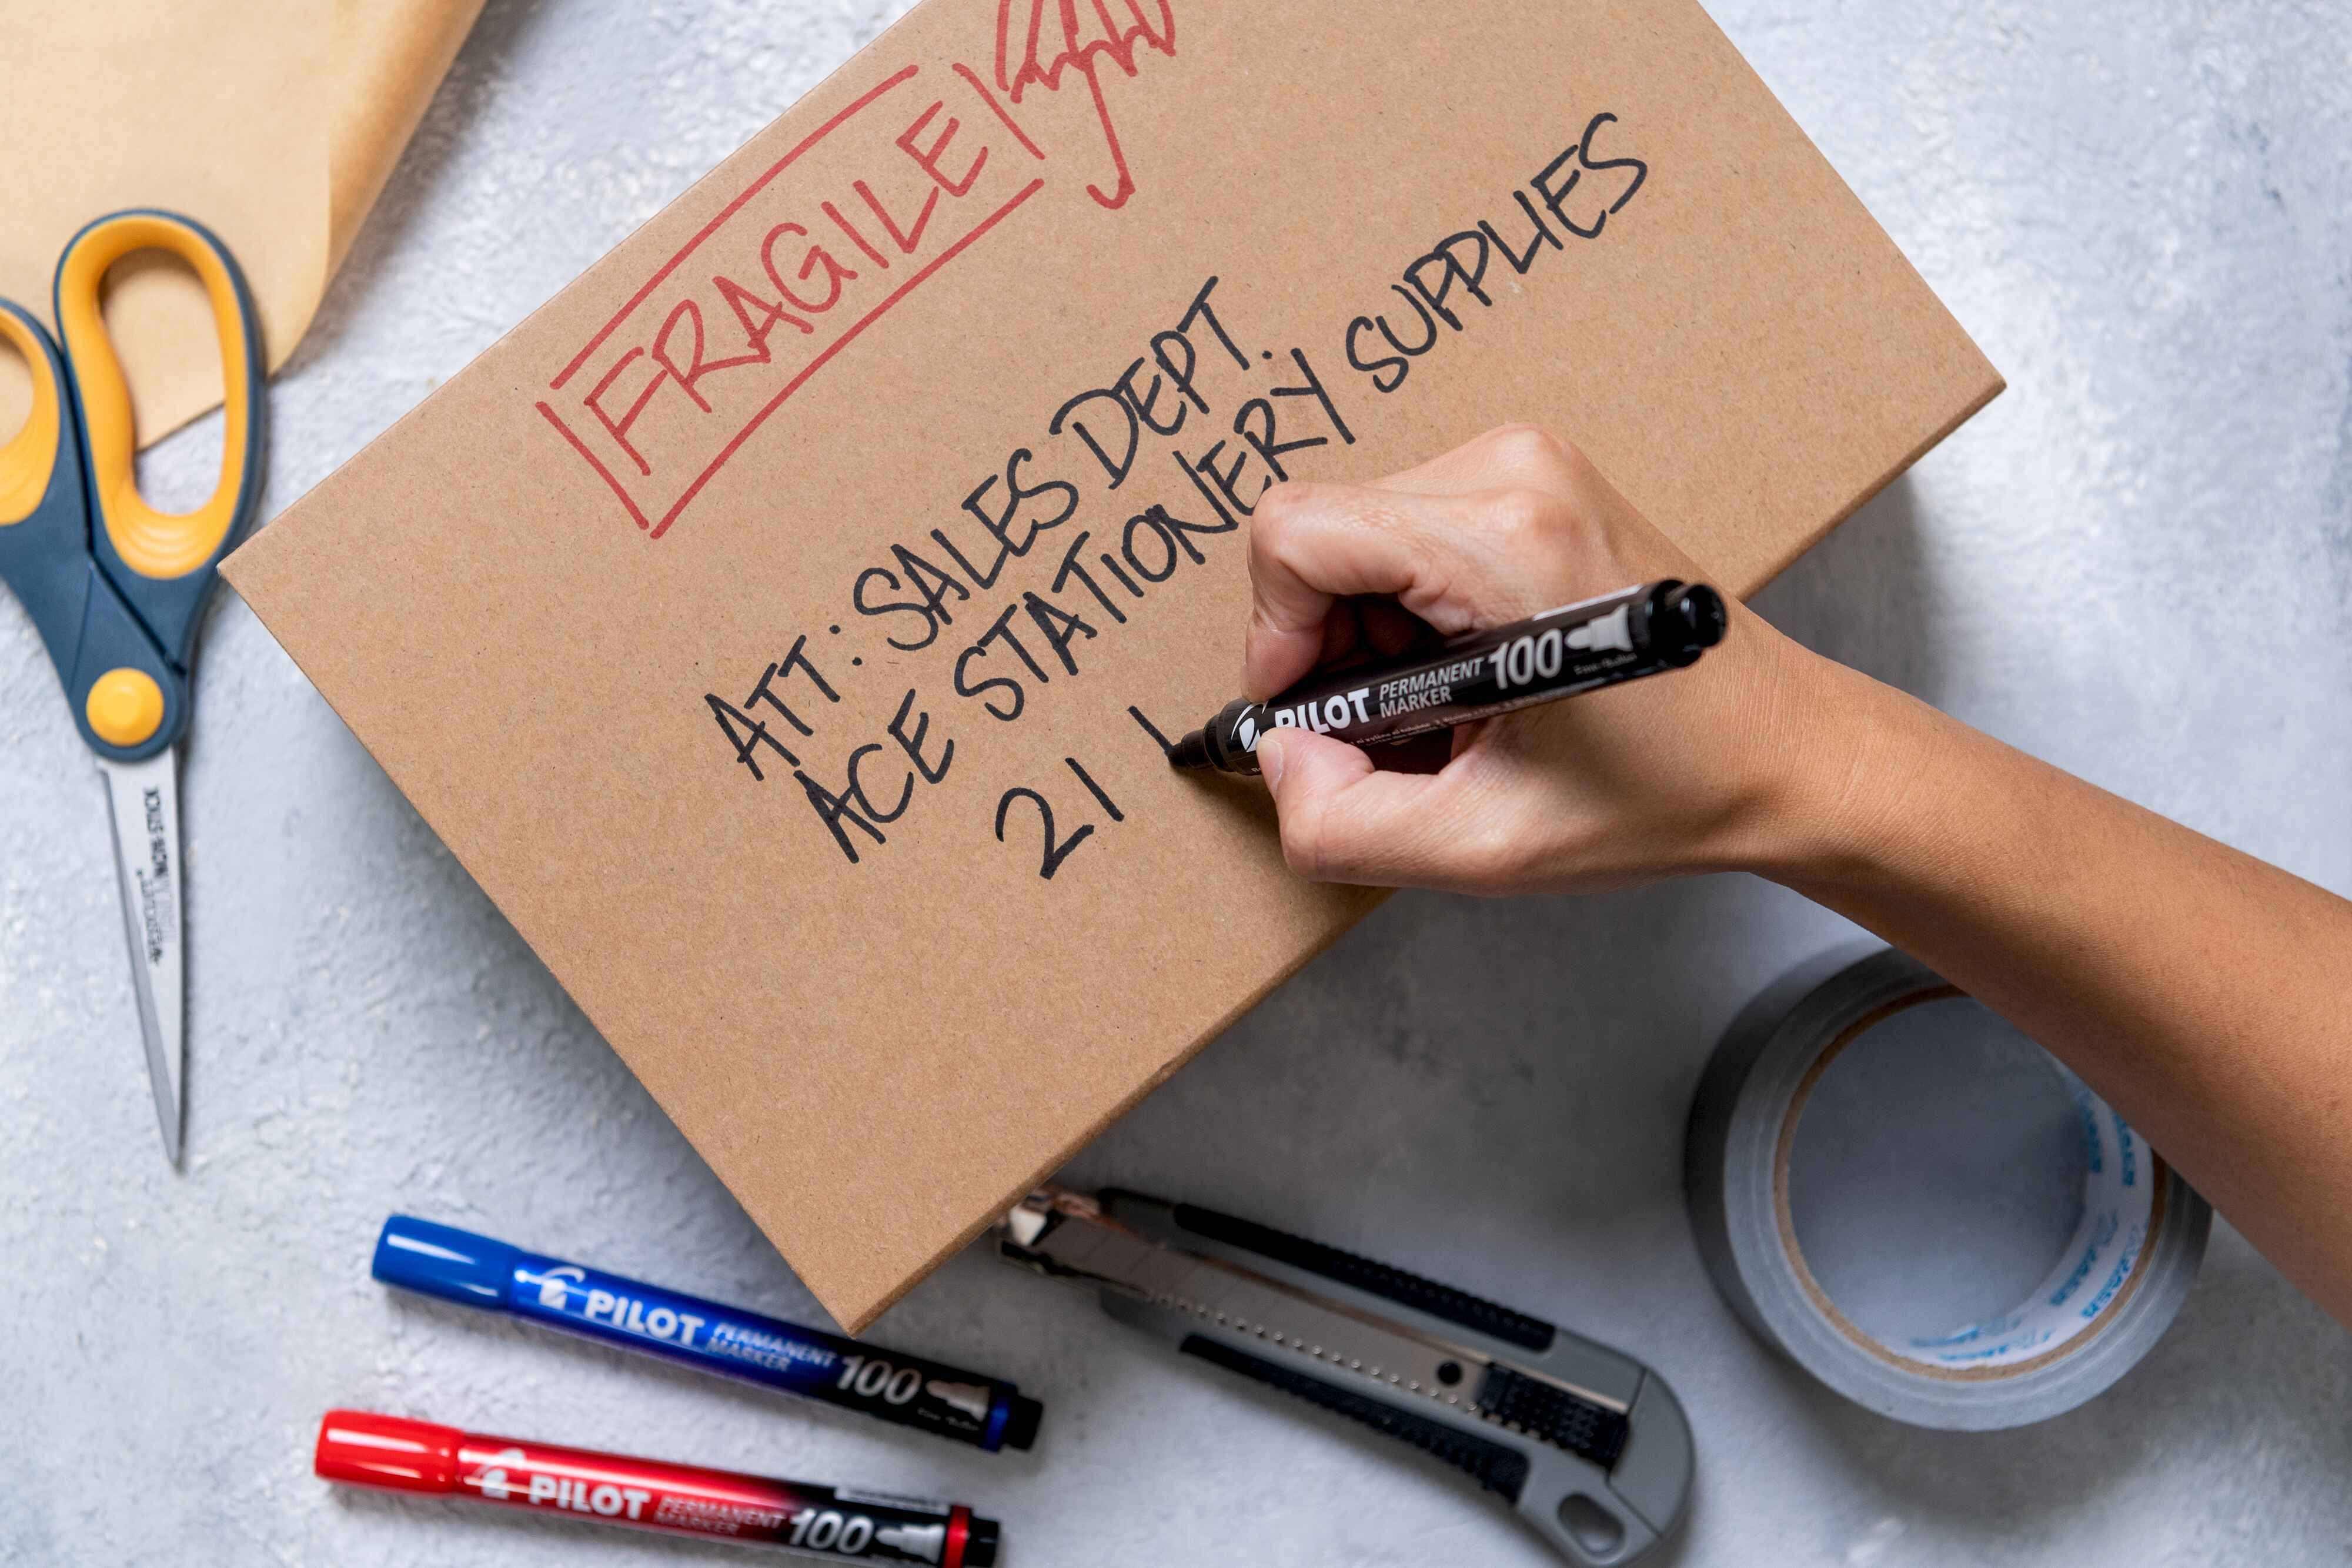 FRAGILE
ATT: SALES DEPT.
ACE STATIONERY SUPPLIES
21
PILOT PERMANENT MARKER 100
PILOT PERMANENT MARKER 100
PILOT PERMANENT MARKER 100